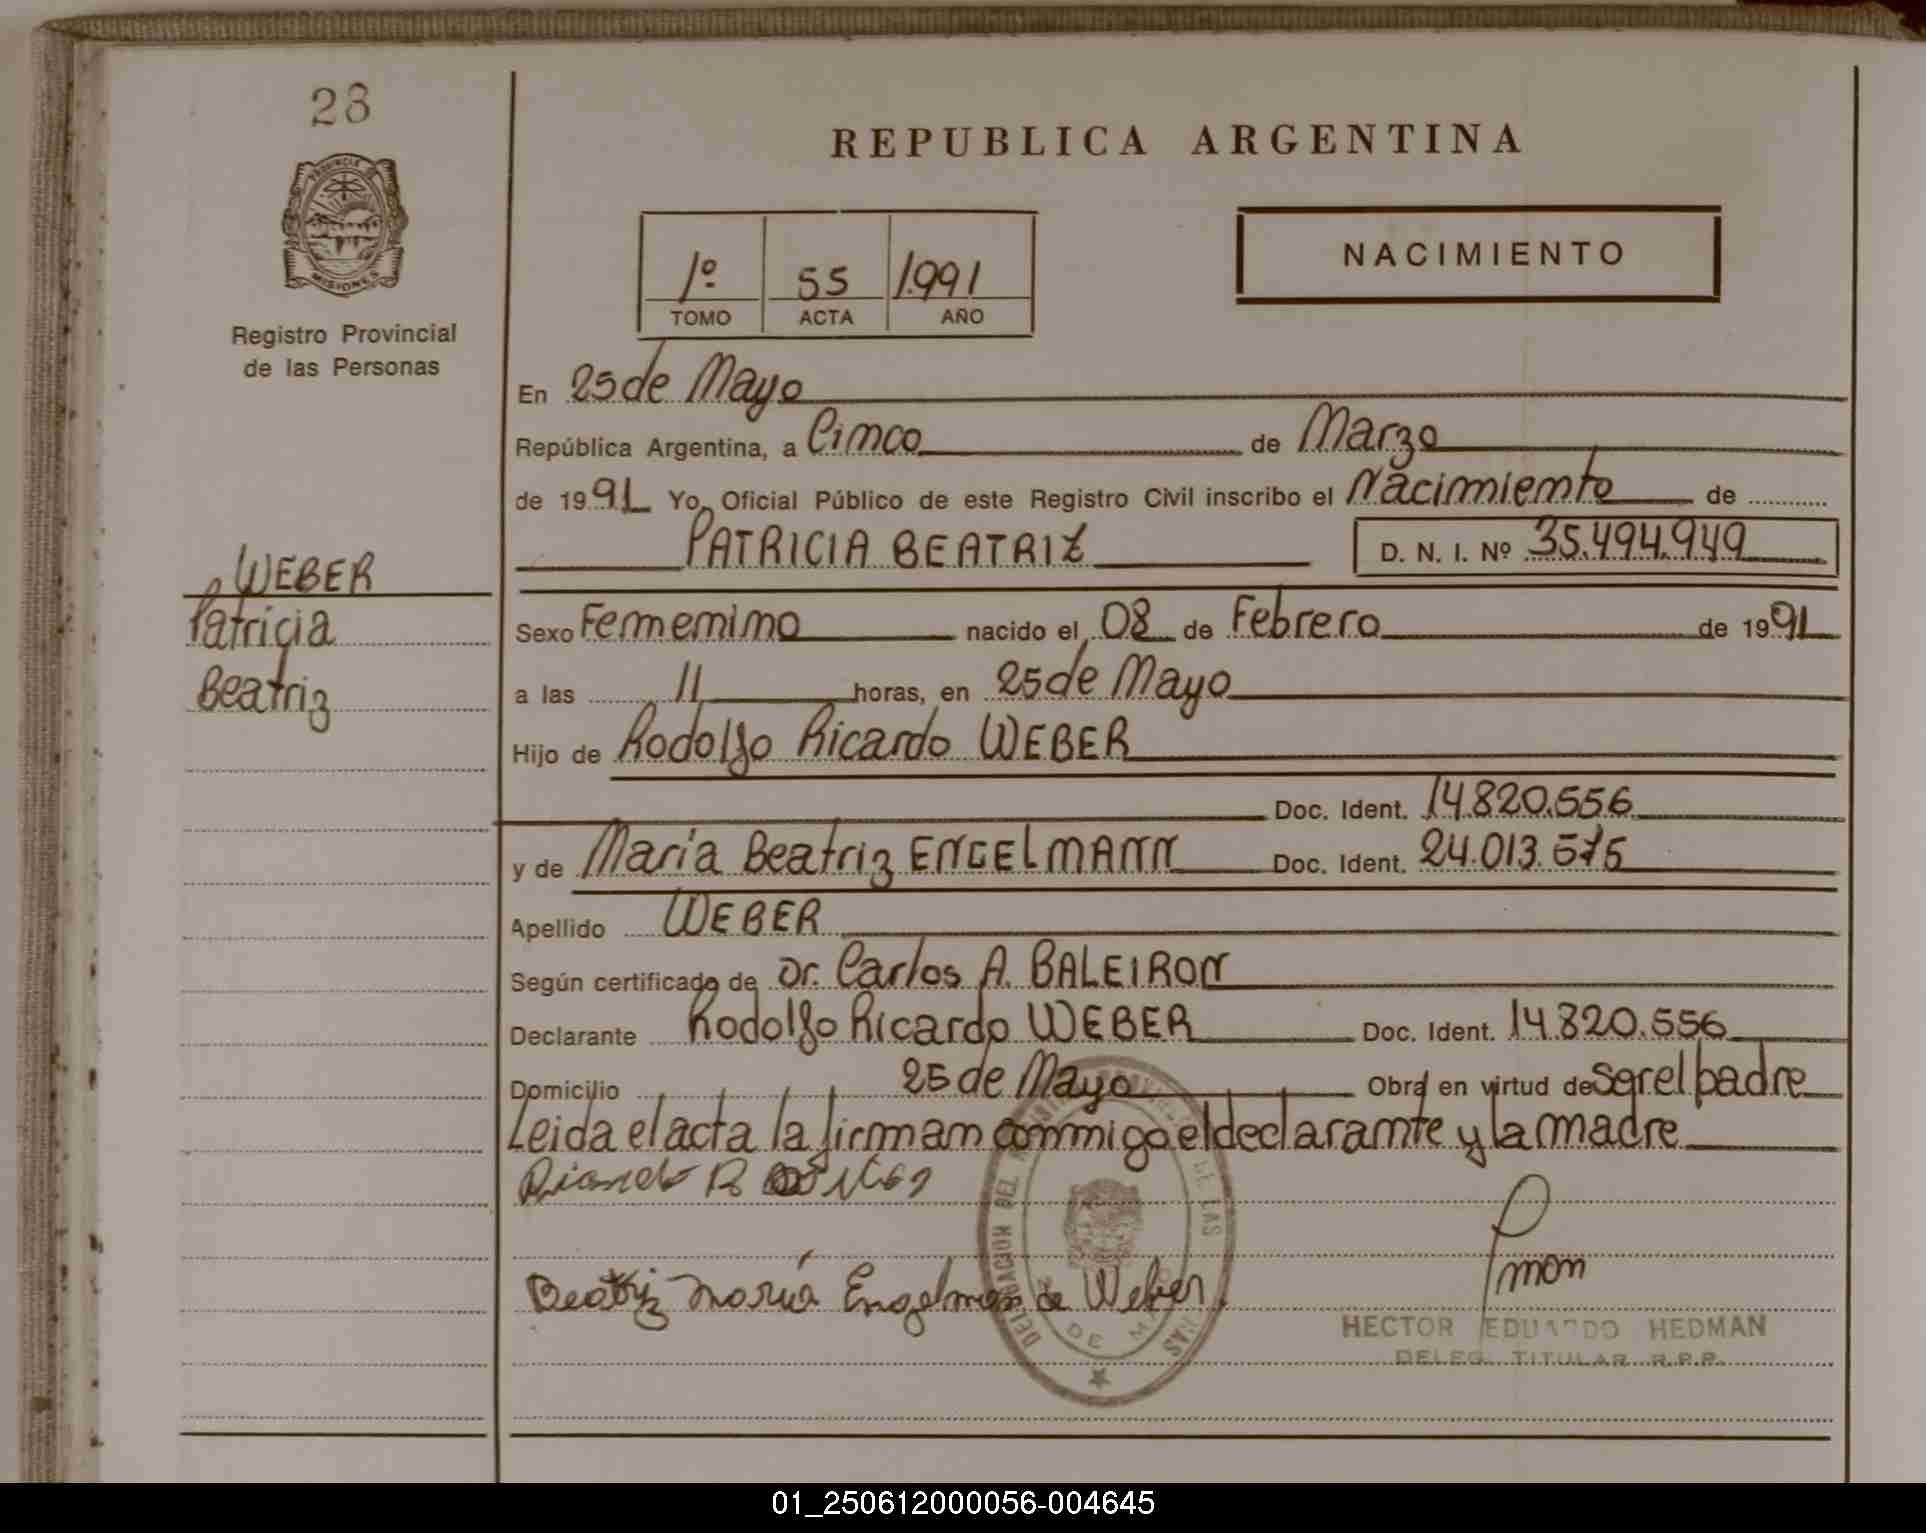 28
PROVINCIA DE
MISIONES
Registro Provincial
de las Personas
WEBER
Patricia
Beatriz
REPUBLICA ARGENTINA
1º 55 1.991
TOMO ACTA AÑO
NACIMIENTO
En 25 de Mayo
República Argentina, a Cinco de Marzo
de 1991 Yo, Oficial Público de este Registro Civil inscribo el Nacimiento de
PATRICIA BEATRIZ D. N. I. Nº 35.494.949
Sexo Femenino nacido el 08 de Febrero de 1991
a las 11 horas, en 25 de Mayo
Hijo de Rodolfo Ricardo WEBER
Doc. Ident. 14.820.556
y de Maria Beatriz ENGELMANN Doc. Ident. 24.013.575
Apellido WEBER
Según certificado de Dr. Carlos A. BALEIRON
Declarante Rodolfo Ricardo WEBER Doc. Ident. 14.820.556
Domicilio 25 de Mayo Obra en virtud de ser el padre
Leida el acta la firman conmigo el declarante y la madre
Beatriz María Engelman de Weber.
DELEGACION DEL REGISTRO PROVINCIAL DE LAS PERSONAS
25 DE MAYO
HECTOR EDUARDO HEDMAN
DELEG. TITULAR R.P.P.
01_250612000056-004645